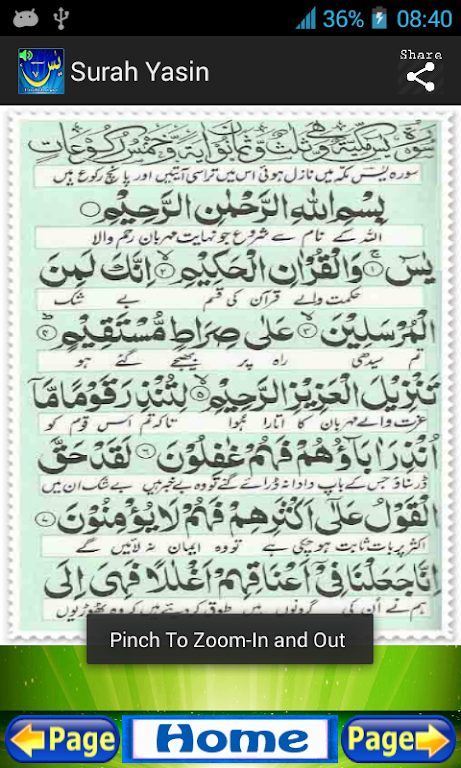 36% 08:40
Surah Yasin
Share
سورہ یٰس مکہ میں نازل ہوئی اس میں تراسی آیتیں اور پانچ رکوع ہیں
بِسْمِ اللهِ الرَّحْمٰنِ الرَّحِيْمِ
اللہ کے نام سے شروع جو نہایت مہربان رحم والا
يٰسٓ ۚ ۱ وَالْقُرْاٰنِ الْحَكِيْمِ ۲ اِنَّكَ لَمِنَ
حکمت والے قرآن کی قسم بے شک
الْمُرْسَلِيْنَ ۳ عَلٰى صِرَاطٍ مُّسْتَقِيْمٍ ۴
تم سیدھی راہ پر بھیجے گئے ہو
تَنْزِيْلَ الْعَزِيْزِ الرَّحِيْمِ ۵ لِتُنْذِرَ قَوْمًا مَّآ
عزت والے مہربان کا اتارا ہوا تاکہ تم اس قوم کو
اُنْذِرَ اٰبَآؤُهُمْ فَهُمْ غٰفِلُوْنَ ۶ لَقَدْ حَقَّ
ڈر سناؤ جس کے باپ دادا نہ ڈرائے گئے تو وہ بے خبر ہیں بے شک ان میں
الْقَوْلُ عَلٰٓى اَكْثَرِهِمْ فَهُمْ لَا يُؤْمِنُوْنَ ۷
اکثر پر بات ثابت ہو چکی ہے تو وہ ایمان نہ لائیں گے
اِنَّا جَعَلْنَا فِيْٓ اَعْنَاقِهِمْ اَغْلٰلًا فَهِيَ اِلَى
ہم نے ان کی گردنوں میں طوق کر دیئے ہیں کہ وہ ٹھوڑیوں
Pinch To Zoom-In and Out
Page
Home
Page